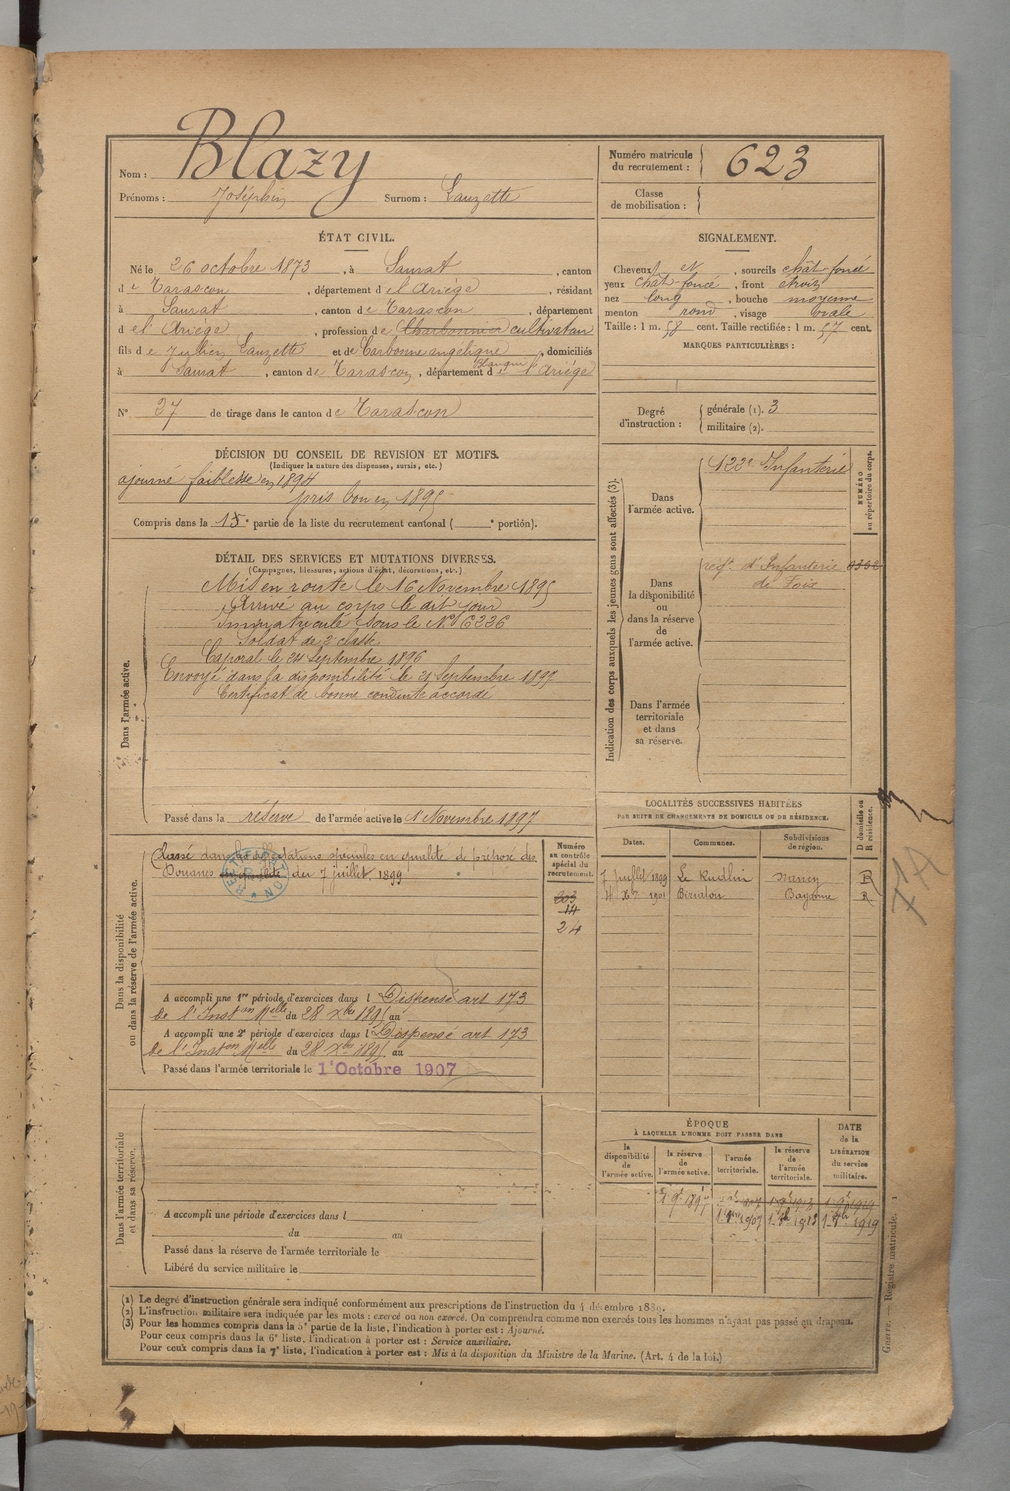 Nom : Blazy
Prénoms : Joséphin Surnom : Lauzette
Numéro matricule du recrutement : 623
Classe de mobilisation :
ÉTAT CIVIL.
Né le 26 octobre 1873, à Saurat, canton
de Tarascon, département de l'Ariège, résidant
à Saurat, canton de Tarascon, département
de l'Ariège, profession de Charbonnier cultivateur
fils de Julien Lauzette et de Carbonne angélique, domiciliés
à Saurat, canton de Tarascon, département de l'Ariège
N° 37 de tirage dans le canton de Tarascon
SIGNALEMENT.
Cheveux et, sourcils chât foncé
yeux chât foncé, front étroit
nez long, bouche moyenne
menton rond, visage ovale
Taille : 1 m. 58 cent. Taille rectifiée : 1 m. 57 cent.
MARQUES PARTICULIÈRES :
Degré d'instruction : générale (1). 3
militaire (2).
DÉCISION DU CONSEIL DE REVISION ET MOTIFS.
(Indiquer la nature des dispenses, sursis, etc.)
ajourné faiblesse en 1894
pris bon en 1895
Compris dans la 1e partie de la liste du recrutement cantonal ( e portion).
DÉTAIL DES SERVICES ET MUTATIONS DIVERSES.
(Campagnes, blessures, actions d'éclat, décorations, etc.)
Dans l'armée active.
Mis en route le 16 Novembre 1895
Arrivé au corps le dit jour
Immatriculé sous le N° 6236
Soldat de 2e classe
Caporal le 24 Septembre 1896
Envoyé dans la disponibilité le 21 Septembre 1897
Certificat de bonne conduite accordé
Passé dans la réserve de l'armée active le 1 Novembre 1897
Indication des corps auxquels les jeunes gens sont affectés (3).
NUMÉRO au répertoire du corps.
Dans l'armée active. 122e Infanterie
Dans la disponibilité ou dans la réserve de l'armée active.
regt d'Infanterie
de Foix
Dans l'armée territoriale et dans sa réserve.
Dans la disponibilité ou dans la réserve de l'armée active.
Classé dans les affectations spéciales en qualité de préposé des
Douanes du 7 juillet 1899
RECTIFICATION
Numéro au contrôle spécial du recrutement.
303
14
24
A accompli une 1re période d'exercices dans l Dispensé art 173
de l'Inston Melle du 28 Xbre 1895 au
A accompli une 2e période d'exercices dans l Dispensé art 173
de l'Inston Melle du 28 Xbre 1895 au
Passé dans l'armée territoriale le 1er Octobre 1907
LOCALITÉS SUCCESSIVES HABITÉES
PAR SUITE DE CHANGEMENTS DE DOMICILE OU DE RÉSIDENCE.
Dates. Communes. Subdivisions de région. D domicile ou R résidence.
7 juillet 1899 Le Rudlin Nancy R
4 Xbre 1901 Biriatou Bayonne R
Dans l'armée territoriale et dans sa réserve.
A accompli une période d'exercices dans l
du au
Passé dans la réserve de l'armée territoriale le
Libéré du service militaire le
ÉPOQUE
À LAQUELLE L'HOMME DOIT PASSER DANS
la disponibilité de l'armée active.
la réserve de l'armée active.
l'armée territoriale.
la réserve de l'armée territoriale.
DATE de la LIBÉRATION du service militaire.
(1) Le degré d'instruction générale sera indiqué conformément aux prescriptions de l'instruction du 4 décembre 1889.
(2) L'instruction militaire sera indiquée par les mots : exercé ou non exercé. On comprendra comme non exercés tous les hommes n'ayant pas passé au drapeau.
(3) Pour les hommes compris dans la 5e partie de la liste, l'indication à porter est : Ajourné.
Pour ceux compris dans la 6e liste, l'indication à porter est : Service auxiliaire.
Pour ceux compris dans la 7e liste, l'indication à porter est : Mis à la disposition du Ministre de la Marine. (Art. 4 de la loi.)
Guerre. Registre matricule. 1